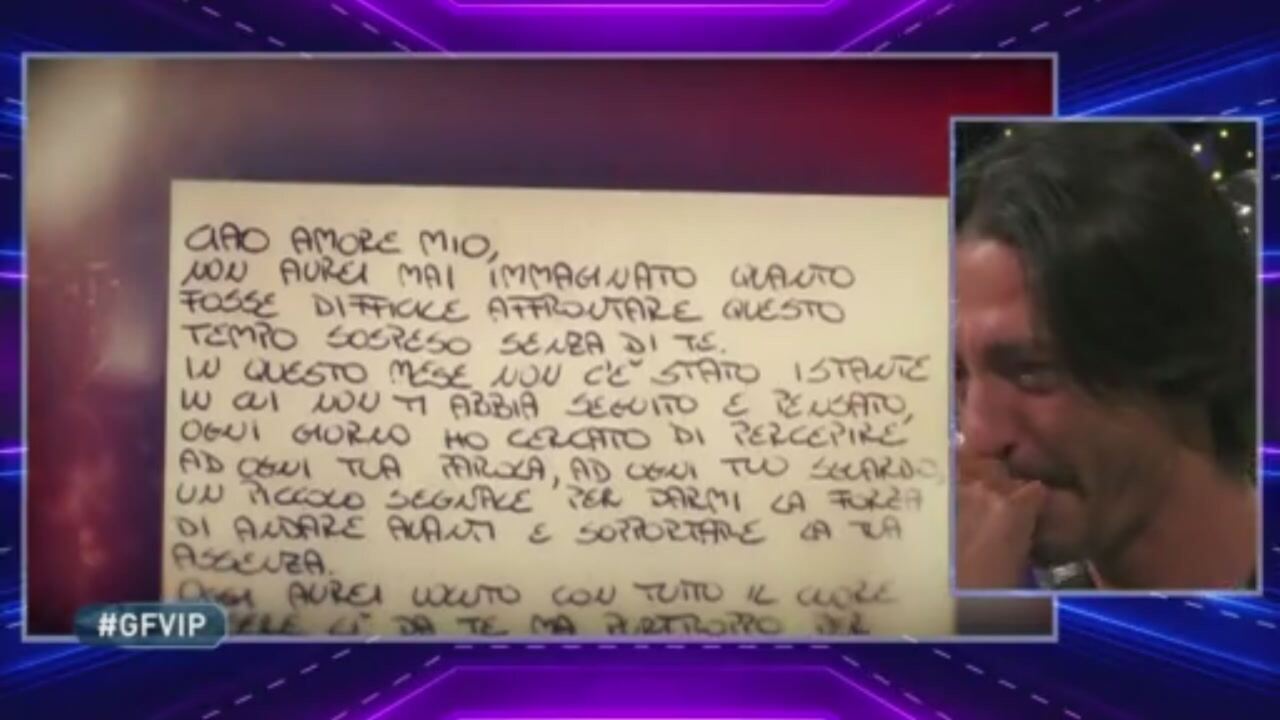 CIAO AMORE MIO,
NON AUREI MAI IMMAGINATO QUANTO
FOSSE DIFFICILE AFFRONTARE QUESTO
TEMPO SOSPESO SENZA DI TE.
IN QUESTO MESE NON C'E' STATO ISTANTE
IN CUI NON TI ABBIA SEGUITO E PENSATO,
OGNI GIORNO HO CERCATO DI PERCEPIRE
AD OGNI TUA PAROLA, AD OGNI TUO SGUARDO,
UN PICCOLO SEGNALE PER DARMI LA FORZA
DI ANDARE AVANTI E SOPPORTARE LA TUA
ASSENZA.
OGGI AUREI VOLUTO CON TUTTO IL CUORE
LI' DA TE MA PURTROPPO PER
#GFVIP